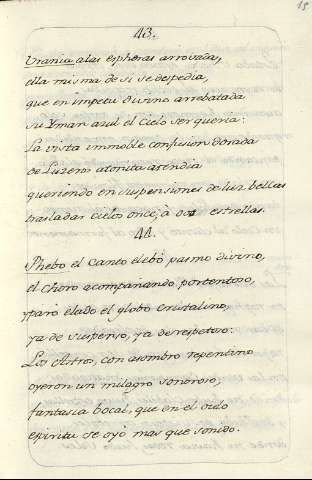 15
43.
Urania alas espheras arrovada,
ella misma de si se despedia,
que en impetu divino arrebatada
su Yman azul el Cielo ser queria:
La vista immoble confusion dorada
de Luzeros atonita atendia
queriendo en suspensiones de luz bellas
trasladar cielos once, à dos estrellas.
44.
Phebo el Canto elebò pasmo divino,
el choro acompañando portentoso,
yparò elado el globo cristalino,
ya de suspenso, ya de respetoso:
Los Astros, con asombro repentino
oyeron un milagro sonoroso,
fantasia bocal, que en el oido
espiritu se oyò mas que sonido.